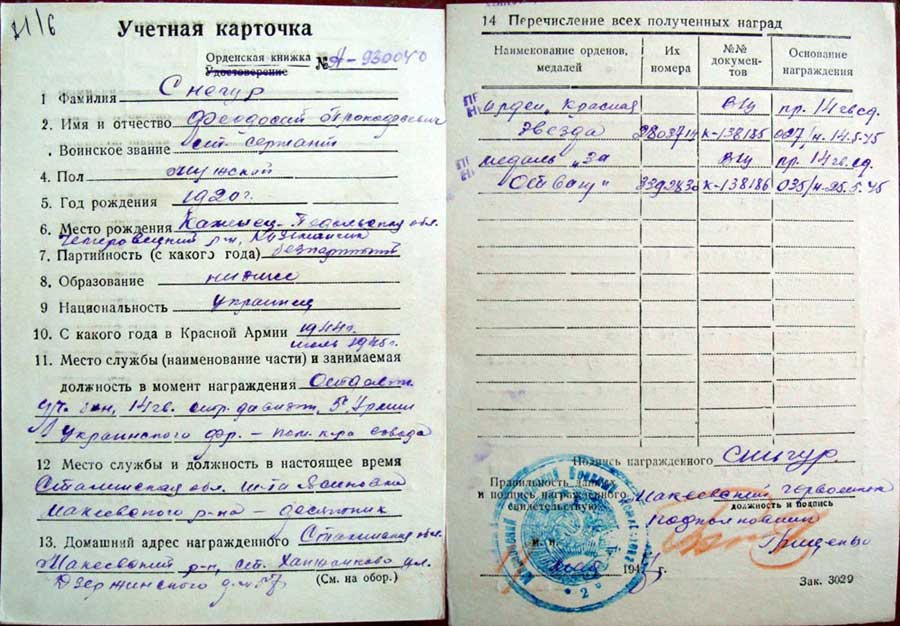 71/6
Учетная карточка
Орденская книжка
Удостоверение № А-930040
1 Фамилия Снегур
2. Имя и отчество Феодосий
. Воинское звание ст. сержант
4. Пол мужской
5. Год рождения 1920 г.
6. Место рождения Каменец-Подольская обл.
Чемеровецкий р-н,
7. Партийность (с какого года) беспартийный
8. Образование низшее
9 Национальность Украинец
10. С какого года в Красной Армии 1944 г.
июль 1945 г.
11. Место службы (наименование части) и занимаемая
должность в момент награждения
14 гв. стр. дивизии, 5 Армии
Украинского фр. – пом. к-ра взвода
12 Место службы и должность в настоящее время
Сталинская обл. ш-та Ясиновка
Макеевского р-на – десятник
13. Домашний адрес награжденного Сталинская обл.
Макеевский р-н, ст. Ханженково ул.
Дзержинского д. №
(См. на обор.)
14 Перечисление всех полученных наград
Наименование орденов, медалей
Их номера
№№ документов
Основание награждения
орден „Красная ВЧ пр. 14 гв сд.
Звезда К-138185 027/н-14.5.45
медаль „За ВЧ пр. 14 гв. сд.
Отвагу" К-138186 035/н-25.5.45
Подпись награжденного Снигур.
Правильность данных
и подпись награжденного
свидетельствую: Макеевский
должность и подпись
подполковник
Грищенко
м. п.
194
2
Зак. 3029